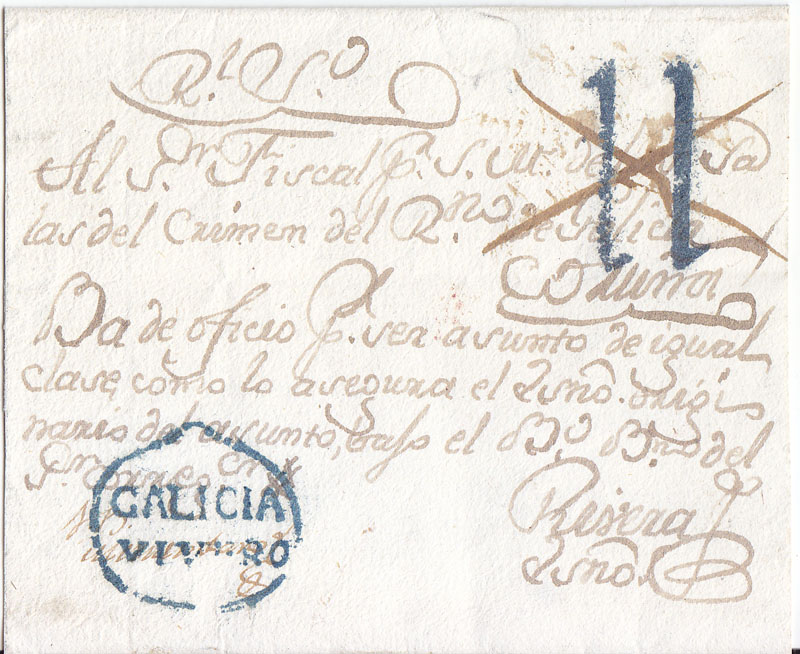 R.l S.o
11
Al S.or Fiscal p.r S. M. de las Sa
las del Crimen del R.no de Galicia
Coruña
Ba de oficio p.r ser asunto de igual
clase, como lo asegura el Esno. origi
nario del asunto, bajo el B.o B.no del
S.or Correo
GALICIA
VIVERO
Rivera
Esno.